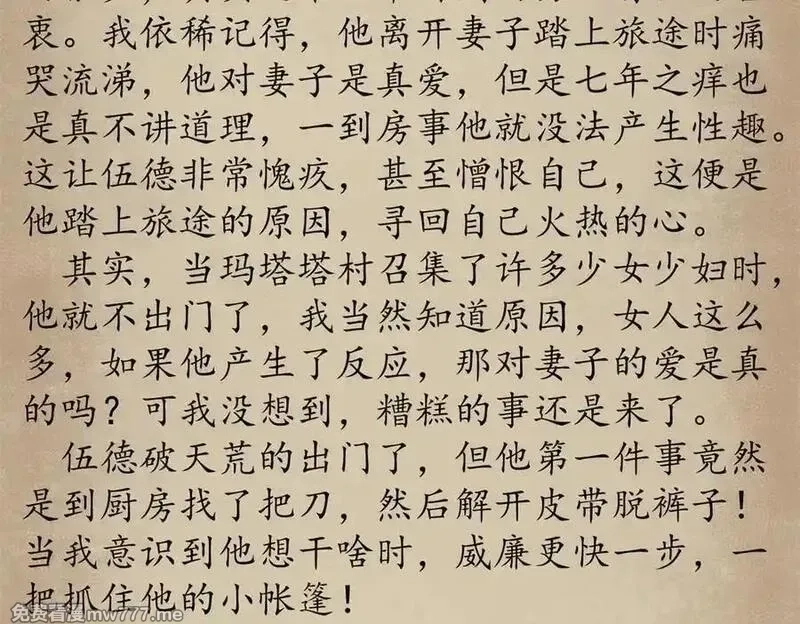 衷。我依稀记得，他离开妻子踏上旅途时痛
哭流涕，他对妻子是真爱，但是七年之痒也
是真不讲道理，一到房事他就没法产生性趣。
这让伍德非常愧疚，甚至憎恨自己，这便是
他踏上旅途的原因，寻回自己火热的心。
其实，当玛塔塔村召集了许多少女少妇时，
他就不出门了，我当然知道原因，女人这么
多，如果他产生了反应，那对妻子的爱是真
的吗？可我没想到，糟糕的事还是来了。
伍德破天荒的出门了，但他第一件事竟然
是到厨房找了把刀，然后解开皮带脱裤子！
当我意识到他想干啥时，威廉更快一步，一
把抓住他的小帐篷！
免费看漫mw777.me